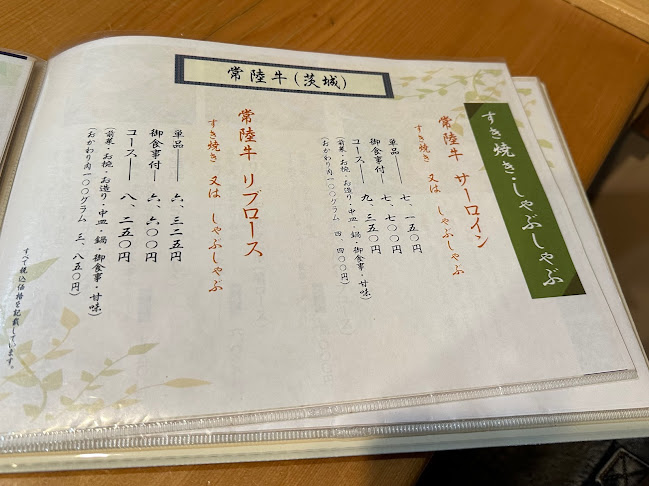 常陸牛(茨城)
すき焼き・しゃぶしゃぶ
常陸牛 サーロイン
すき焼き 又は しゃぶしゃぶ
単品 七、一五〇円
御食事付 七、七〇〇円
コース 九、三五〇円
(前菜・お椀・お造り・中皿・鍋・御食事・甘味)
(おかわり肉一〇〇グラム 四、四〇〇円)
常陸牛 リブロース
すき焼き 又は しゃぶしゃぶ
単品 六、三二五円
御食事付 六、六〇〇円
コース 八、二五〇円
(前菜・お椀・お造り・中皿・鍋・御食事・甘味)
(おかわり肉一〇〇グラム 三、八五〇円)
すべて税込価格を記載しています。